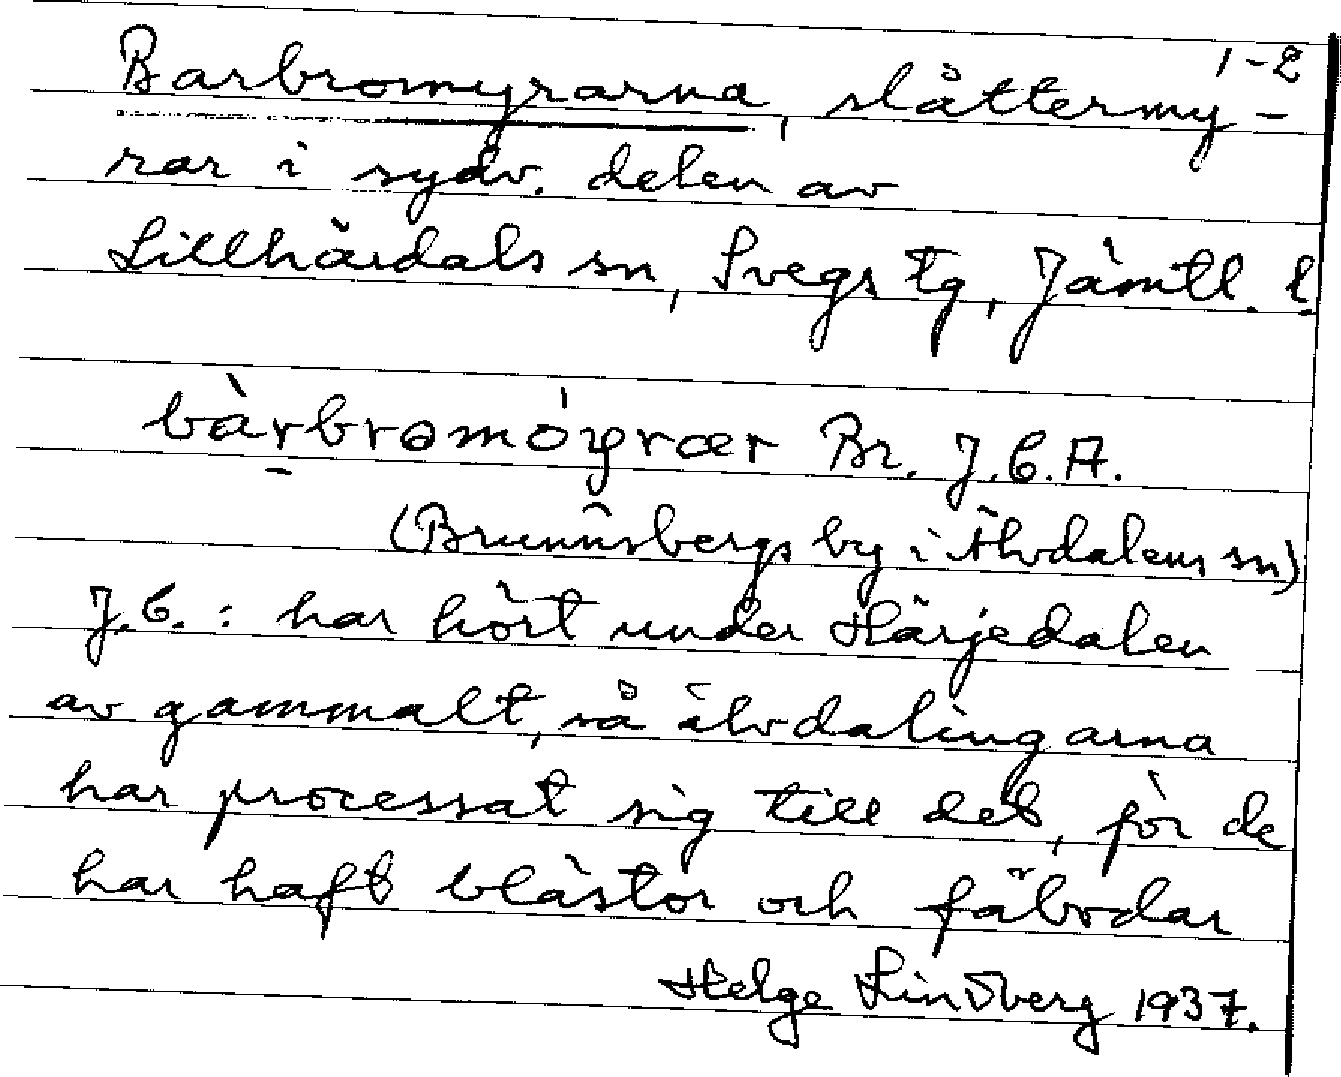 1-2
Barbromyrarna, slåttermy-
rar i sydv. delen av
Lillhärdals sn, Svegs tg, Jämtl. l
bàrbromóyrær Br. J.E.A.
(Brunnsbergs by i Älvdalens sn)
J.E. : har hört under Härjedalen
av gammalt, så älvdalingarna
har processat sig till det, för de
har haft slåttor och fäbodar
Helge Lindberg 1937.